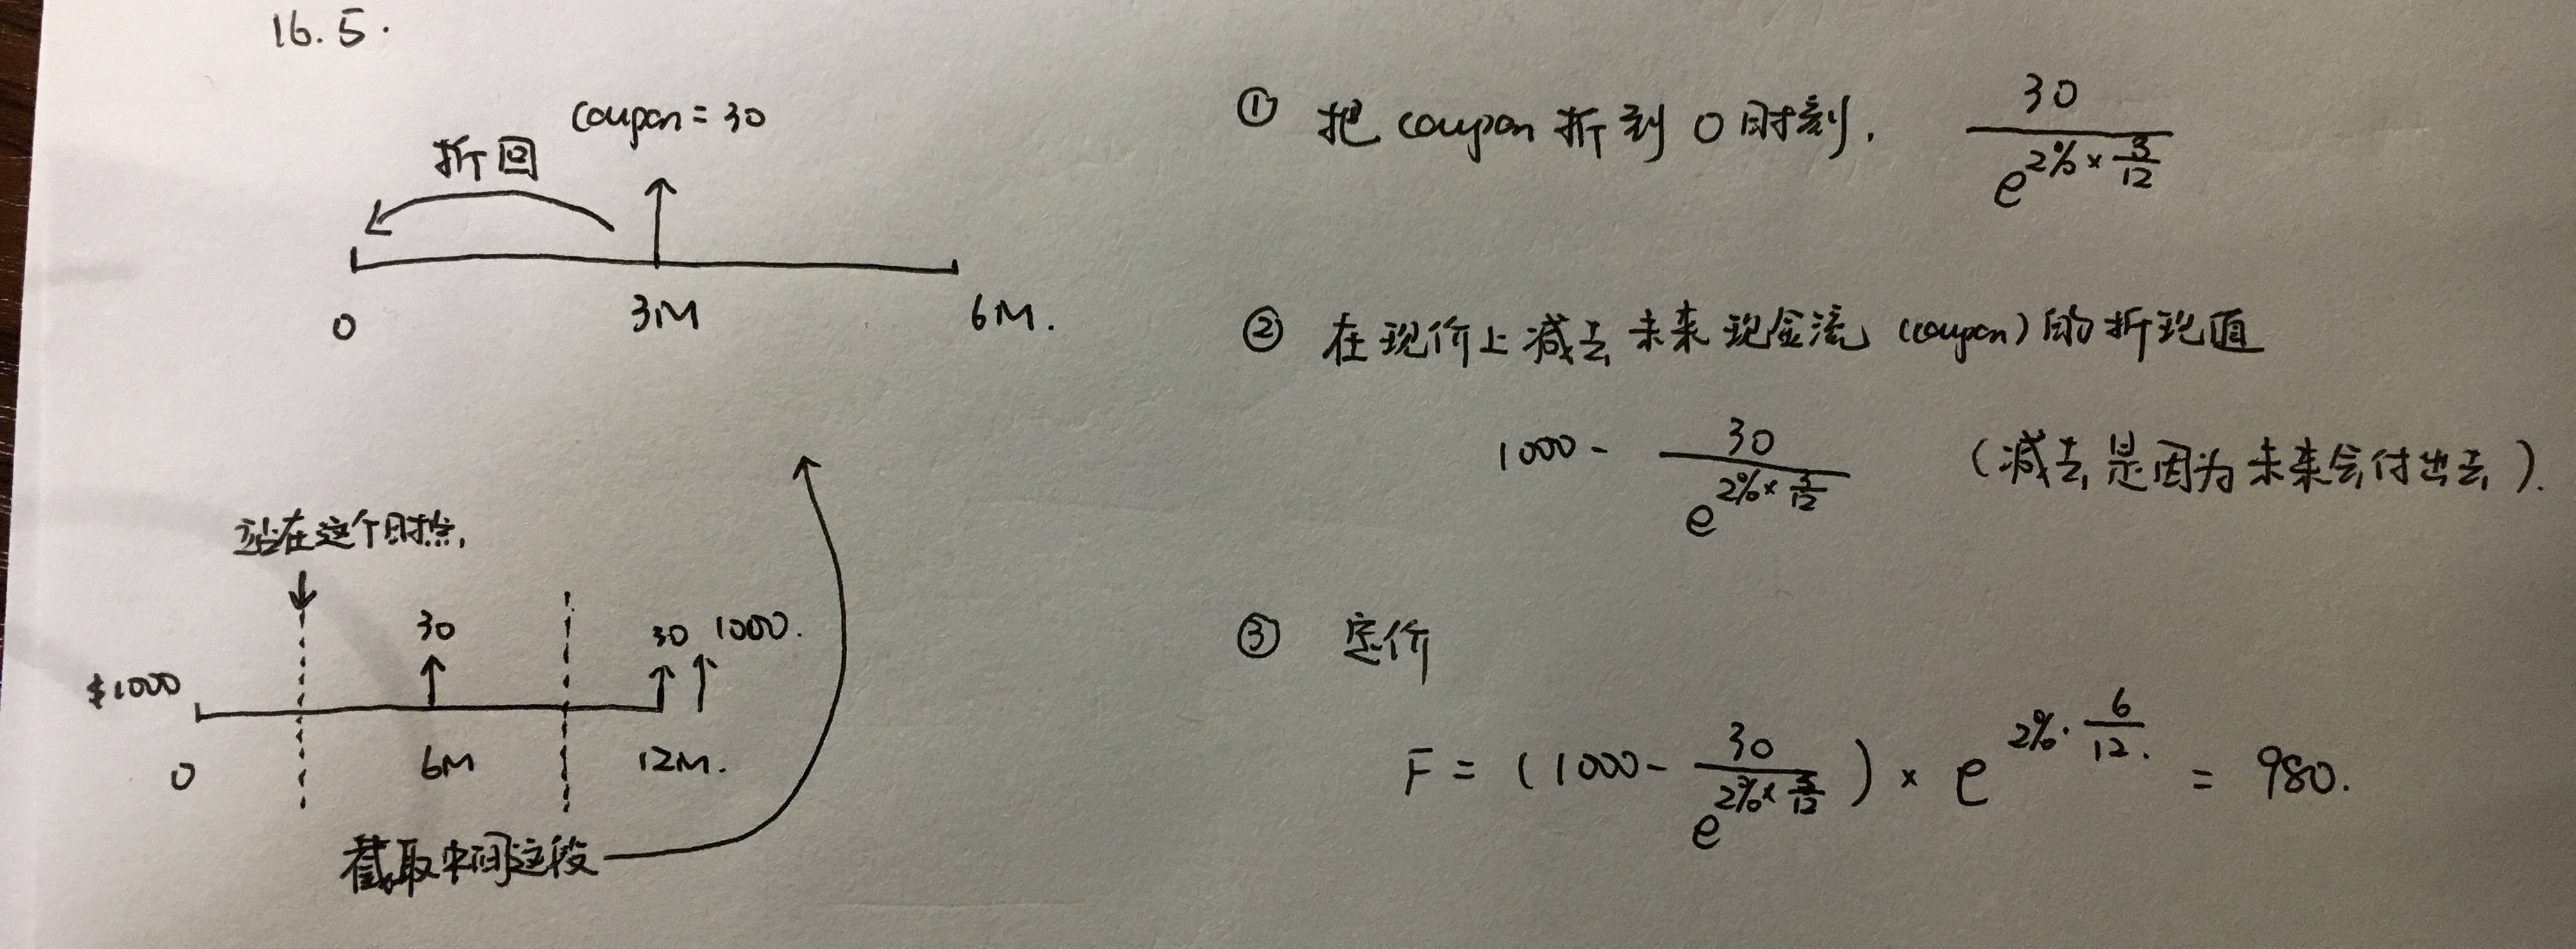 16.5.
coupon = 30
折回
0 3M 6M.
站在这个时点,
30 30 1000.
$1000
0 6M 12M.
截取中间这段
① 把 coupon 折到 0 时刻. 30 / e^{2% × 3/12}
② 在现价上减去未来现金流 (coupon) 的折现值
1000 - 30 / e^{2% × 3/12} (减去是因为未来会付出去).
③ 定价
F = (1000 - 30 / e^{2% × 3/12}) × e^{2% · 6/12.} = 980.